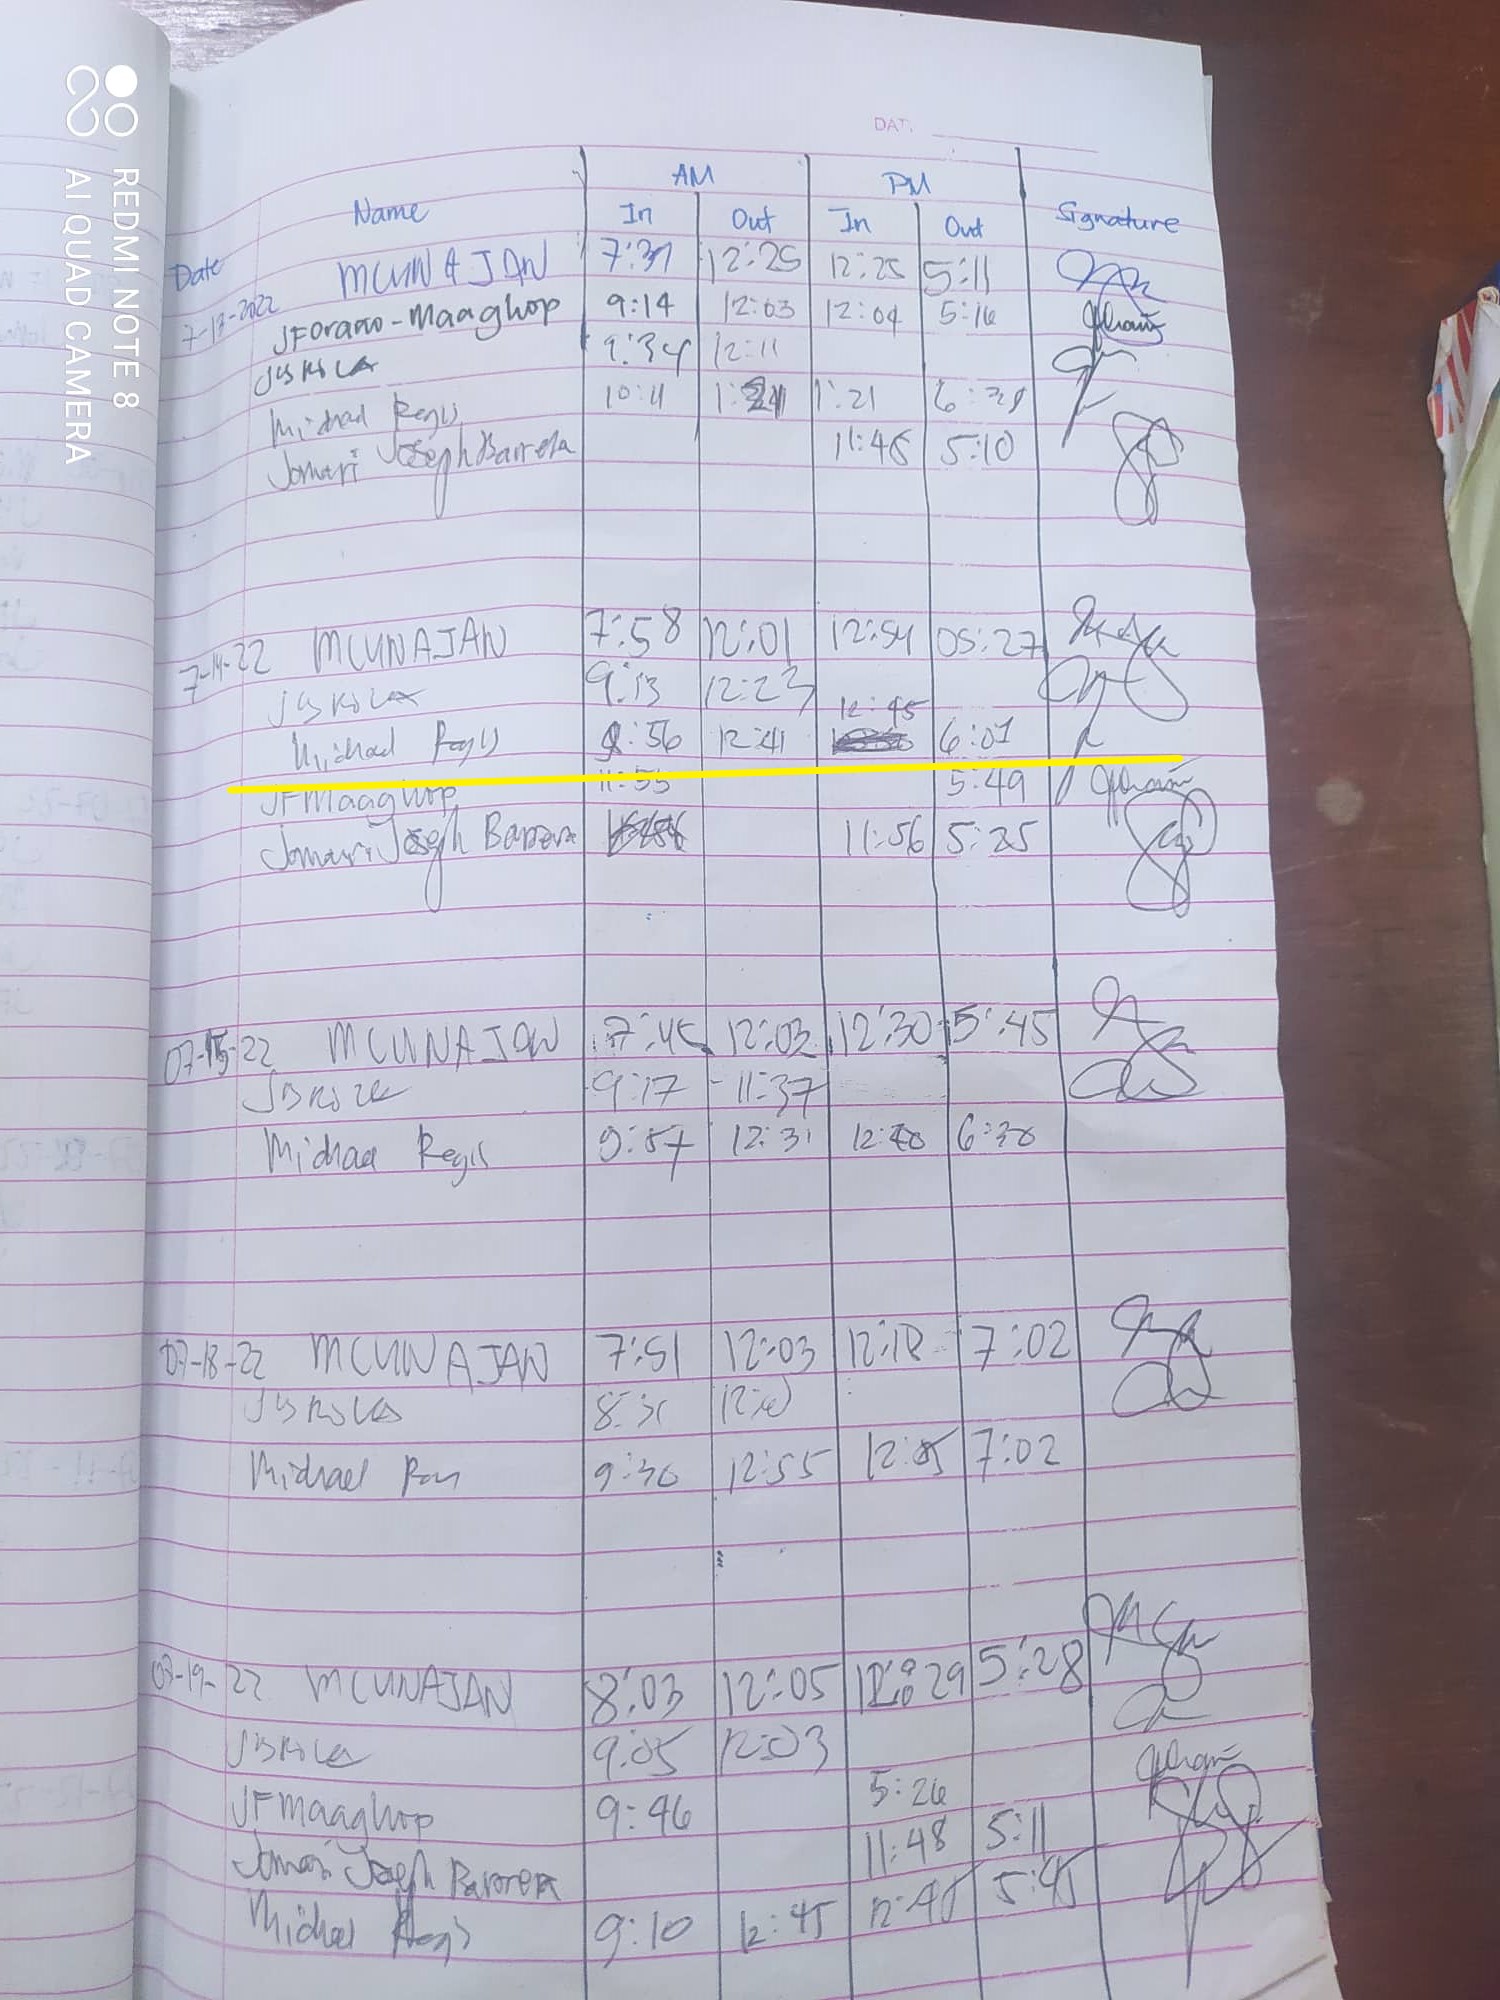 REDMI NOTE 8
AI QUAD CAMERA
DATE
AM PM
Date Name In Out In Out Signature
7-13-2022 MCUNAJAN 7:37 12:25 12:25 5:11
JFOrano-Maaghop 9:14 12:03 12:04 5:16
9:34 12:11
Michael Regis 10:11 1:21 6:39
Jomari Joseph Barrera 11:45 5:10
7-14-22 MCUNAJAN 7:58 12:01 12:54 05:27
9:13 12:23
12:45
Michael Regis 9:56 12:41 6:07
JFMaaghop 11:55 5:49
Jomari Joseph Barrera 11:56 5:25
07-15-22 MCUNAJAN 7:45 12:03 12:30 5:45
9:17 - 11:37
Michael Regis 9:57 12:31 6:30
07-18-22 MCUNAJAN 7:51 12:03 12:18 7:02
8:31
Michael 9:30 12:55 7:02
07-19-22 MCUNAJAN 8:03 12:05 12:29 5:28
9:05 12:03
JFMaaghop 9:46 5:26
Jomari Joseph Barrera 11:48 5:11
Michael Regis 9:10 12:45 12:45 5:45